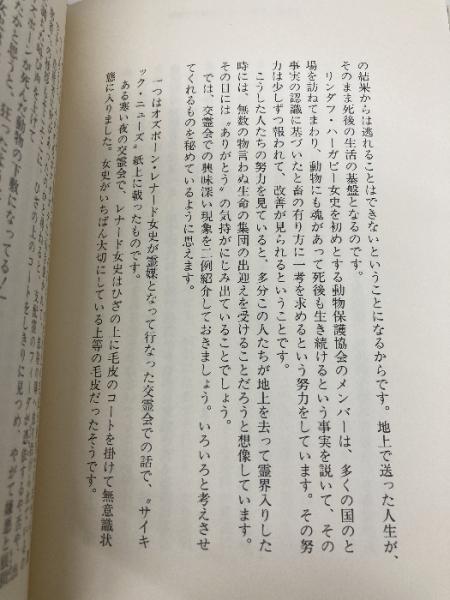 の結果からは逃れることはできないということになるからです。地上で送った人生が、
そのまま死後の生活の基盤となるのです。
リンダフ・ハーガビー女史を初めとする動物保護協会のメンバーは、多くの国のと
場を訪ねてまわり、動物にも魂があって死後も生き続けるという事実を説いて、その
事実の認識に基づいたと畜の有り方に一考を求めるという努力をしています。その努
力は少しずつ報われて、改善が見られるということです。
こうした人たちの努力を見ていると、多分この人たちが地上を去って霊界入りした
時には、無数の物言わぬ生命の集団の出迎えを受けることだろうと想像しています。
その日には〝ありがとう〟の気持がにじみ出ていることでしょう。
では、交霊会での興味深い現象を二例紹介しておきましょう。いろいろと考えさせ
てくれるものを秘めているように思えます。
一つはオズボーン・レナード女史が霊媒となって行なった交霊会での話で、〝サイキ
ック・ニューズ〟紙上に載ったものです。
ある寒い夜の交霊会で、レナード女史はひざの上に毛皮のコートを掛けて無意識状
態に入りました。女史がいちばん大切にしている上等の毛皮だったそうです。
の上のコートをしきりに見つめ、やがて嫌悪と
動物の下敷になってる！」
なと思うと、狂った